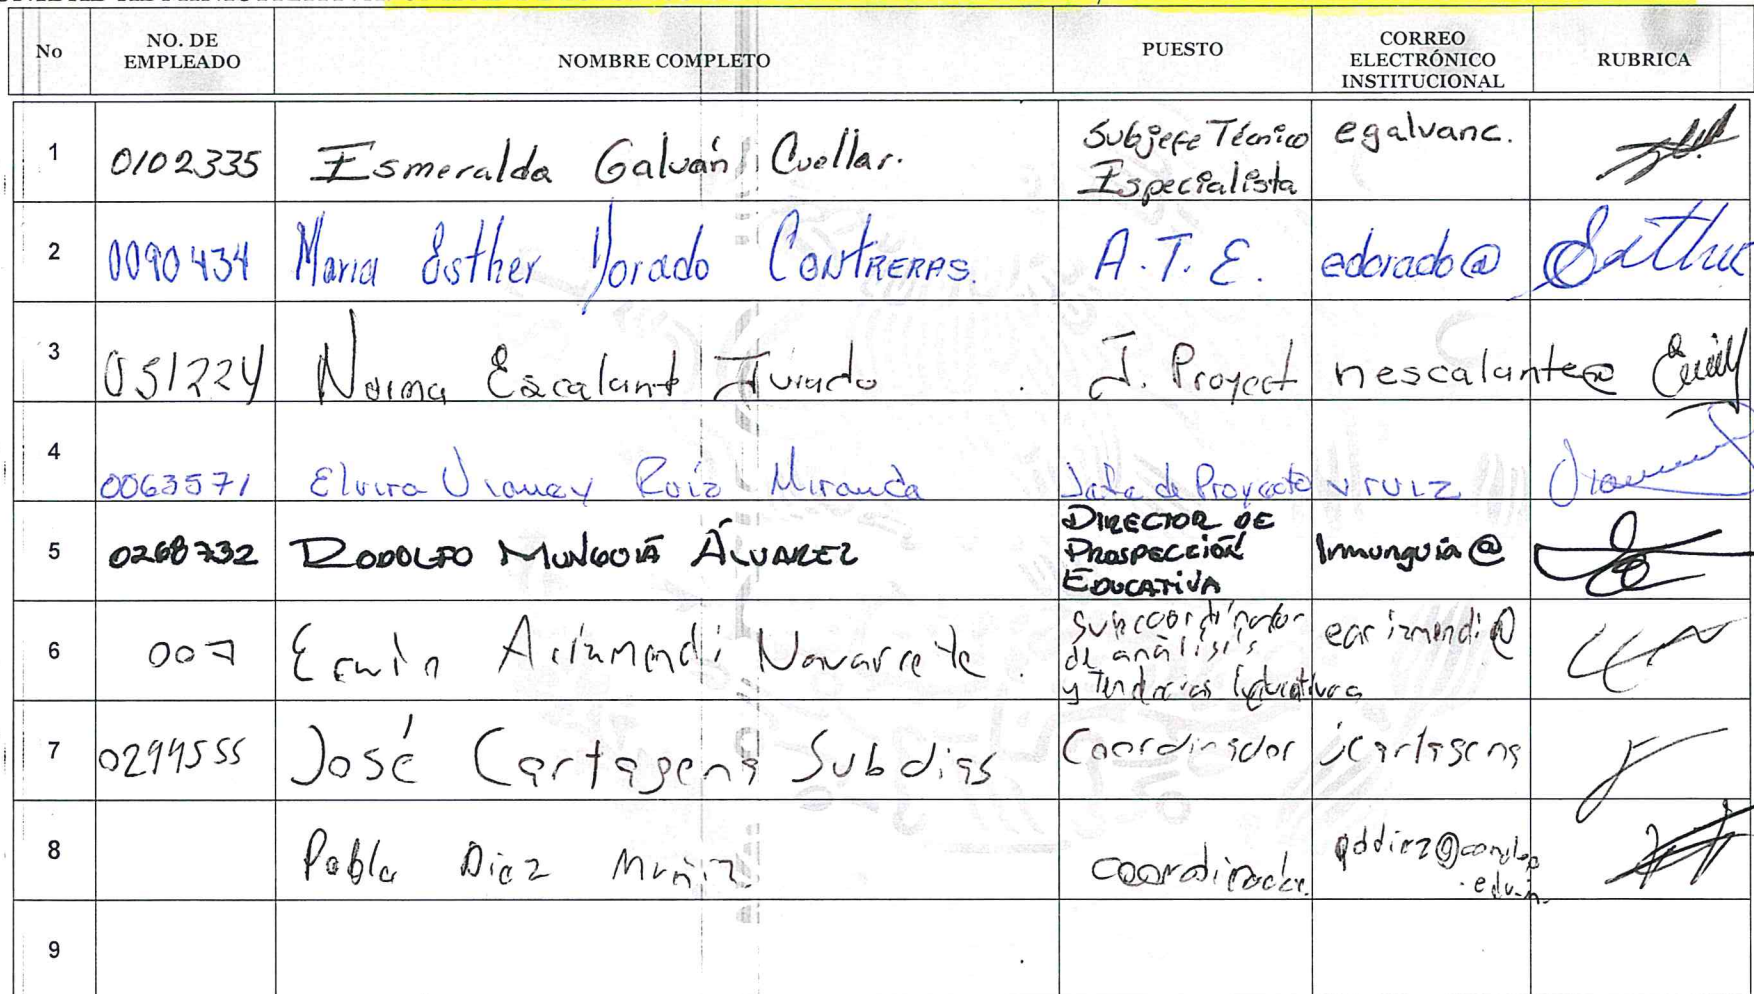 No NO. DE EMPLEADO NOMBRE COMPLETO PUESTO CORREO ELECTRÓNICO INSTITUCIONAL RUBRICA
1 0102335 Esmeralda Galván Cuellar. Subjefe Técnico Especialista egalvanc.
2 0090434 Maria Esther Dorado CONTRERAS. A.T.E. edorado@
3 051224 Norma Escalant Jurado J. Proyect nescalante@
4 0063571 Elvira Vianey Ruiz Miranda Jefe de Proyecto vruiz
5 0268732 RODOLFO MUNGUÍA ÁLVAREZ DIRECTOR DE PROSPECCIÓN EDUCATIVA lrmunguia@
6 007 Erwin Arizmendi Navarrete. Subcoordinador de análisis y Tendencias Educativas earizmendi@
7 0299555 José Cartagena Subdias Coordinador jcartagena
8 Pablo Diez Muñiz coordinador.
9